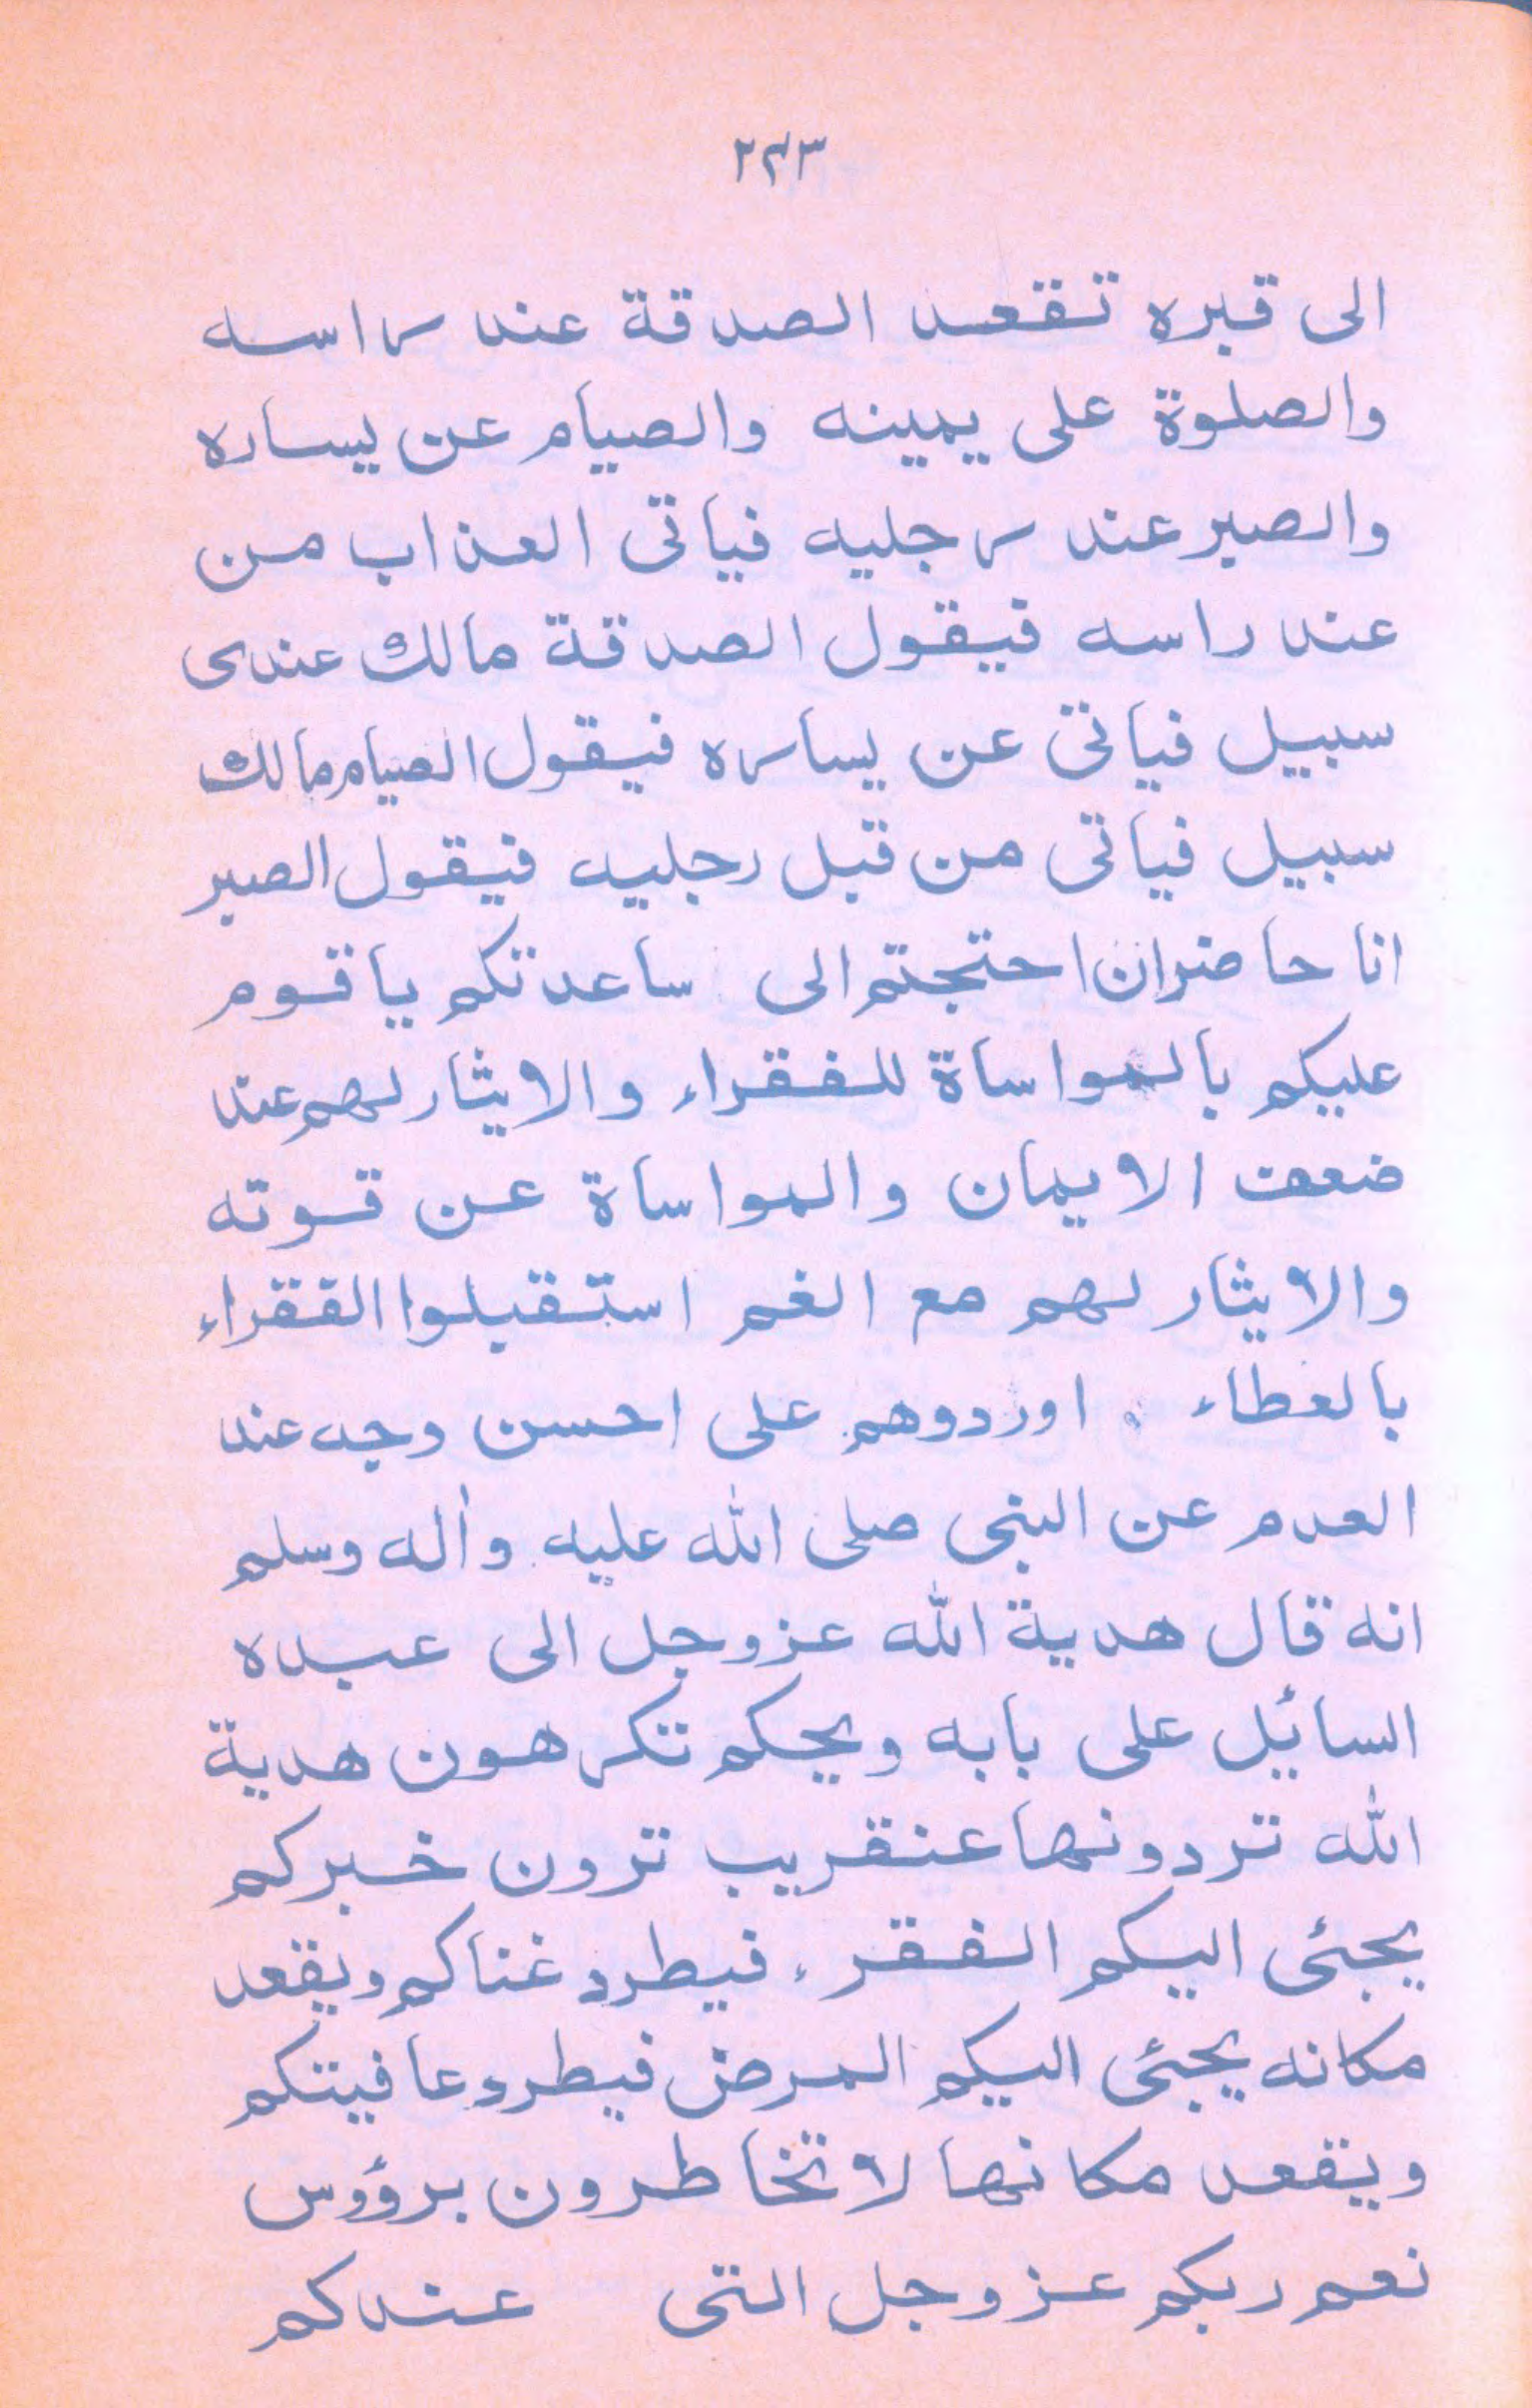 ٢٤٣
الى قبره تقعد الصدقة عند راسه
والصلوة على يمينه والصيام عن يساره
والصبر عند رجليه فياتى العذاب من
عند راسه فيقول الصدقة مالك عندى
سبيل فياتى عن يساره فيقول الصيام مالك
سبيل فياتى من قبل رجليه فيقول الصبر
انا حاضر ان احتجتم الى ساعدتكم يا قوم
عليكم بالمواساة للفقراء والايثار لهم عند
ضعف الايمان والمواساة عن قوته
والايثار لهم مع الغم استقبلوا الفقراء
بالعطاء اوردوهم على احسن وجه عند
العدم عن النبى صلى الله عليه واٰله وسلم
انه قال هدية الله عزوجل الى عبده
السائل على بابه ويحكم تكرهون هدية
الله تردونها عنقريب ترون خبركم
يجئى اليكم الفقر، فيطرد غناكم ويقعد
مكانه يجئى اليكم المرض فيطرد عافيتكم
ويقعد مكانها لا تخاطرون برؤوس
نعم ربكم عزوجل التى عندكم